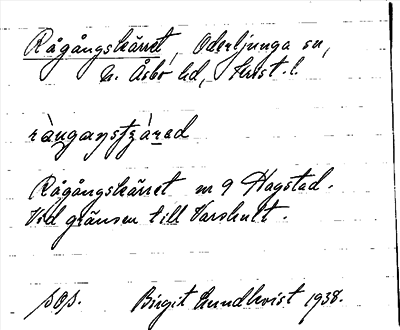 Rågångskärret, Oderljunga sn,
N. Åsbo hd, Krist. l.
Rågångskärret m 9 Hagstad.
Vid gränsen till Varshult.
sos. Birgit Lundkvist 1938.